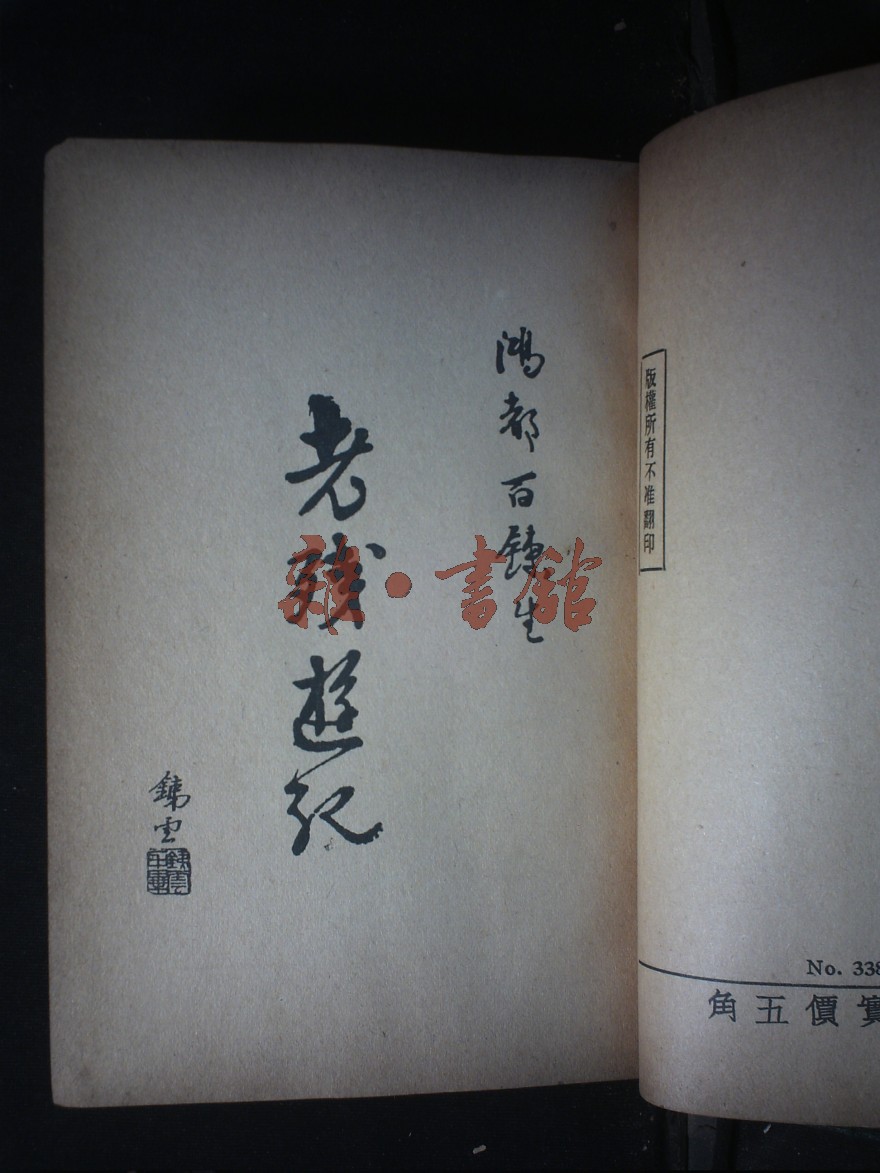 版權所有不准翻印
No. 338
實價五角
鴻都百鍊生
老殘遊記
鐵雲
雜·書館